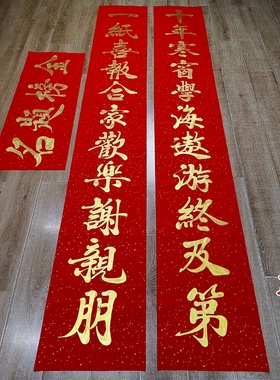 十年寒窗學海遨游終及第
一紙喜報合家歡樂謝親朋
金榜題名